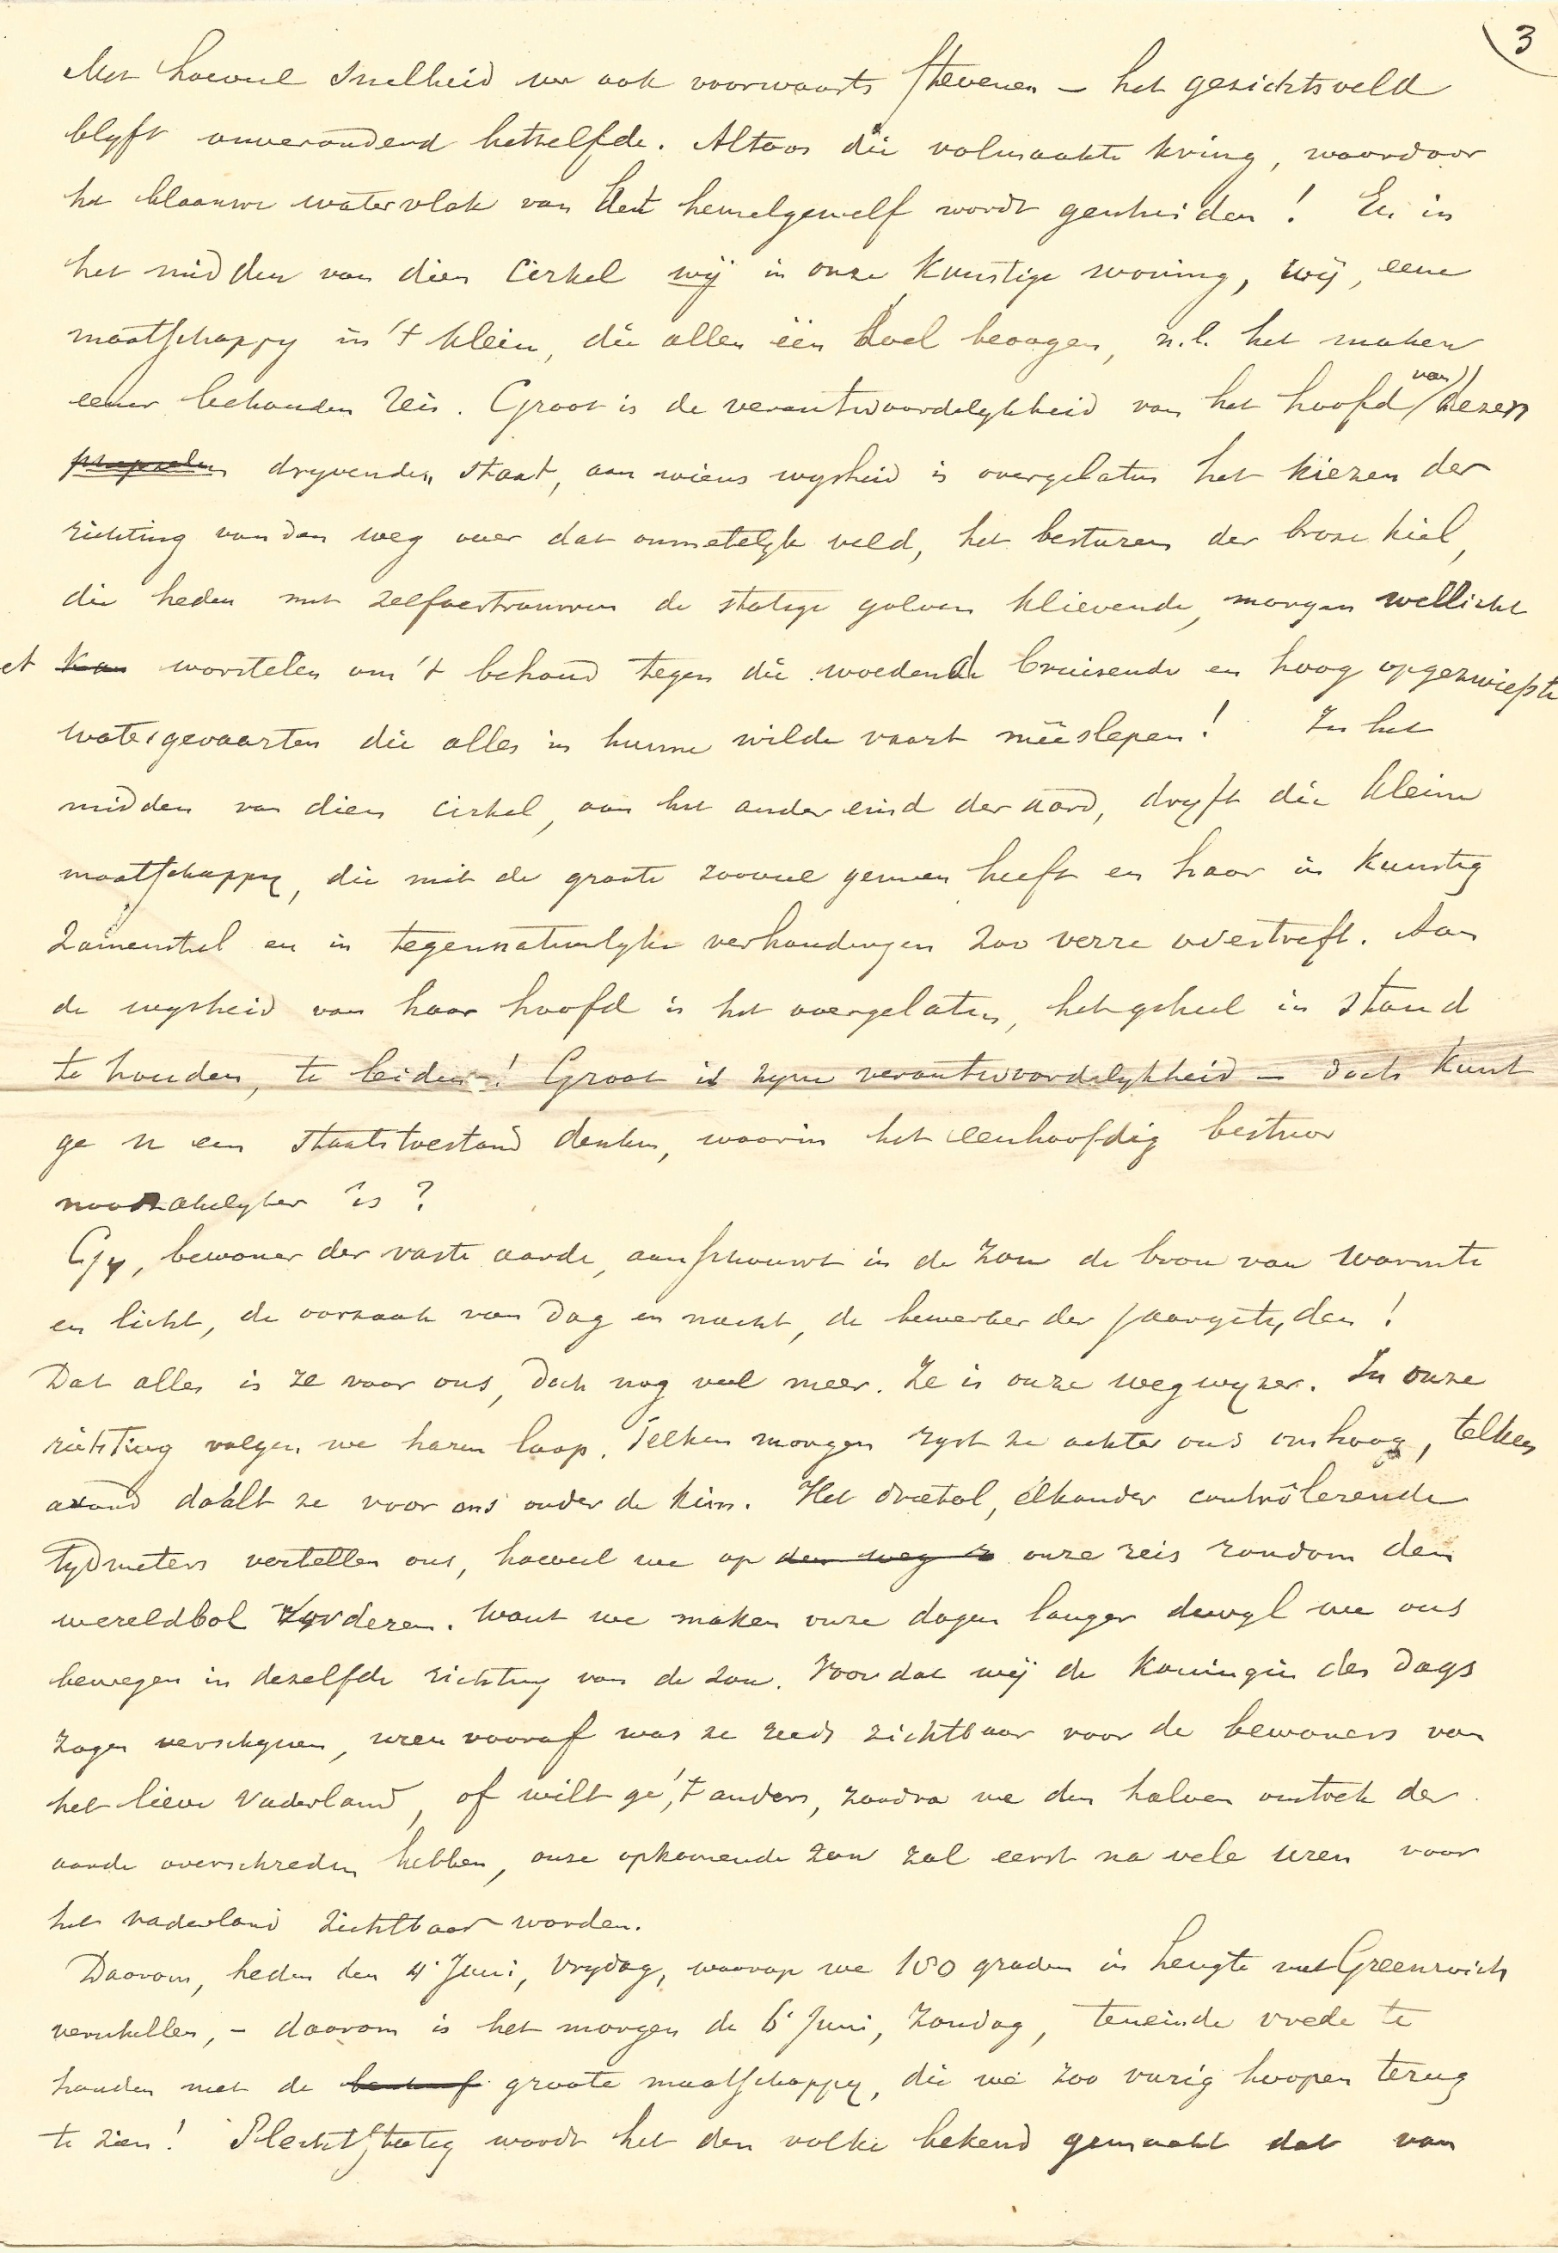 3
Met hoeveel snelheid we ook voorwaarts stevenen – het gezichtsveld
blyft onveranderd hetzelfde. Altoos die volmaakte kring, waardoor
het blaauwe watervlak van het hemelgewelf wordt gescheiden! En in
het midden van dien cirkel wij in onze kunstige woning, wij, eene
maatschappy in 't klein, die allen één doel beoogen, n.l. het maken
eener behouden reis. Groot is de verantwoordelykheid van het hoofd van dezen
dryvenden staat, aan wiens wysheid is overgelaten het kiezen der
richting van den weg over dat onmetelyk veld, het besturen der broze kiel,
die heden met zelfvertrouwen de statige golven klievende, morgen wellicht
worstelen om 't behoud tegen die woedende bruisende en hoog opgezwiepte
watergevaarten die alles in hunne wilde vaart méeslepen! In het
midden van dien cirkel, aan het ander eind der aard, dryft die kleine
maatschappy, die met de groote zooveel gemeen heeft en haar in kunstig
zamenstel en in tegennatuurlyke verhoudingen zoo verre overtreft. Aan
de wysheid van haar hoofd is het overgelaten, het geheel in stand
te houden, te leiden! Groot is zyne verantwoordelykheid – doch kunt
ge u een staatstoestand denken, waarin het eenhoofdig bestuur
noodzakelyker is?
Gy, bewoner der vaste aarde, aanschouwt in de zon de bron van warmte
en licht, de oorzaak van dag en nacht, de bewerker der jaargetyden!
Dat alles is ze voor ons, doch nog veel meer. Ze is onze wegwyzer. In onze
richting volgen we haren loop. Telken morgen ryst ze achter ons omhoog, telken
avond daalt ze voor ons onder de kim. Het drietal, élkander contrôlerende
tydmeters vertellen ons, hoeveel we op den weg onze reis rondom den
wereldbol vorderen. Want we maken onze dagen langer dewyl we ons
bewegen in dezelfde richting van de zon. Voordat wij de koningin des dags
zagen verschynen, uren vooraf was ze reeds zichtbaar voor de bewoners van
het lieve vaderland, of wilt ge 't anders, zoodra we den halven omtrek der
aarde overschreden hebben, onze opkomende zon zal eerst na vele uren voor
het vaderland zichtbaar worden.
Daarom, heden den 4e Juni, vrydag, waarop we 180 graden in lengte met Greenwich
verschillen, – daarom is het morgen de 6e Juni, zondag, teneinde vrede te
houden met de groote maatschappy, die we zoo vurig hoopen terug
te zien! Plechtstatig wordt het den volke bekend gemaakt dat van